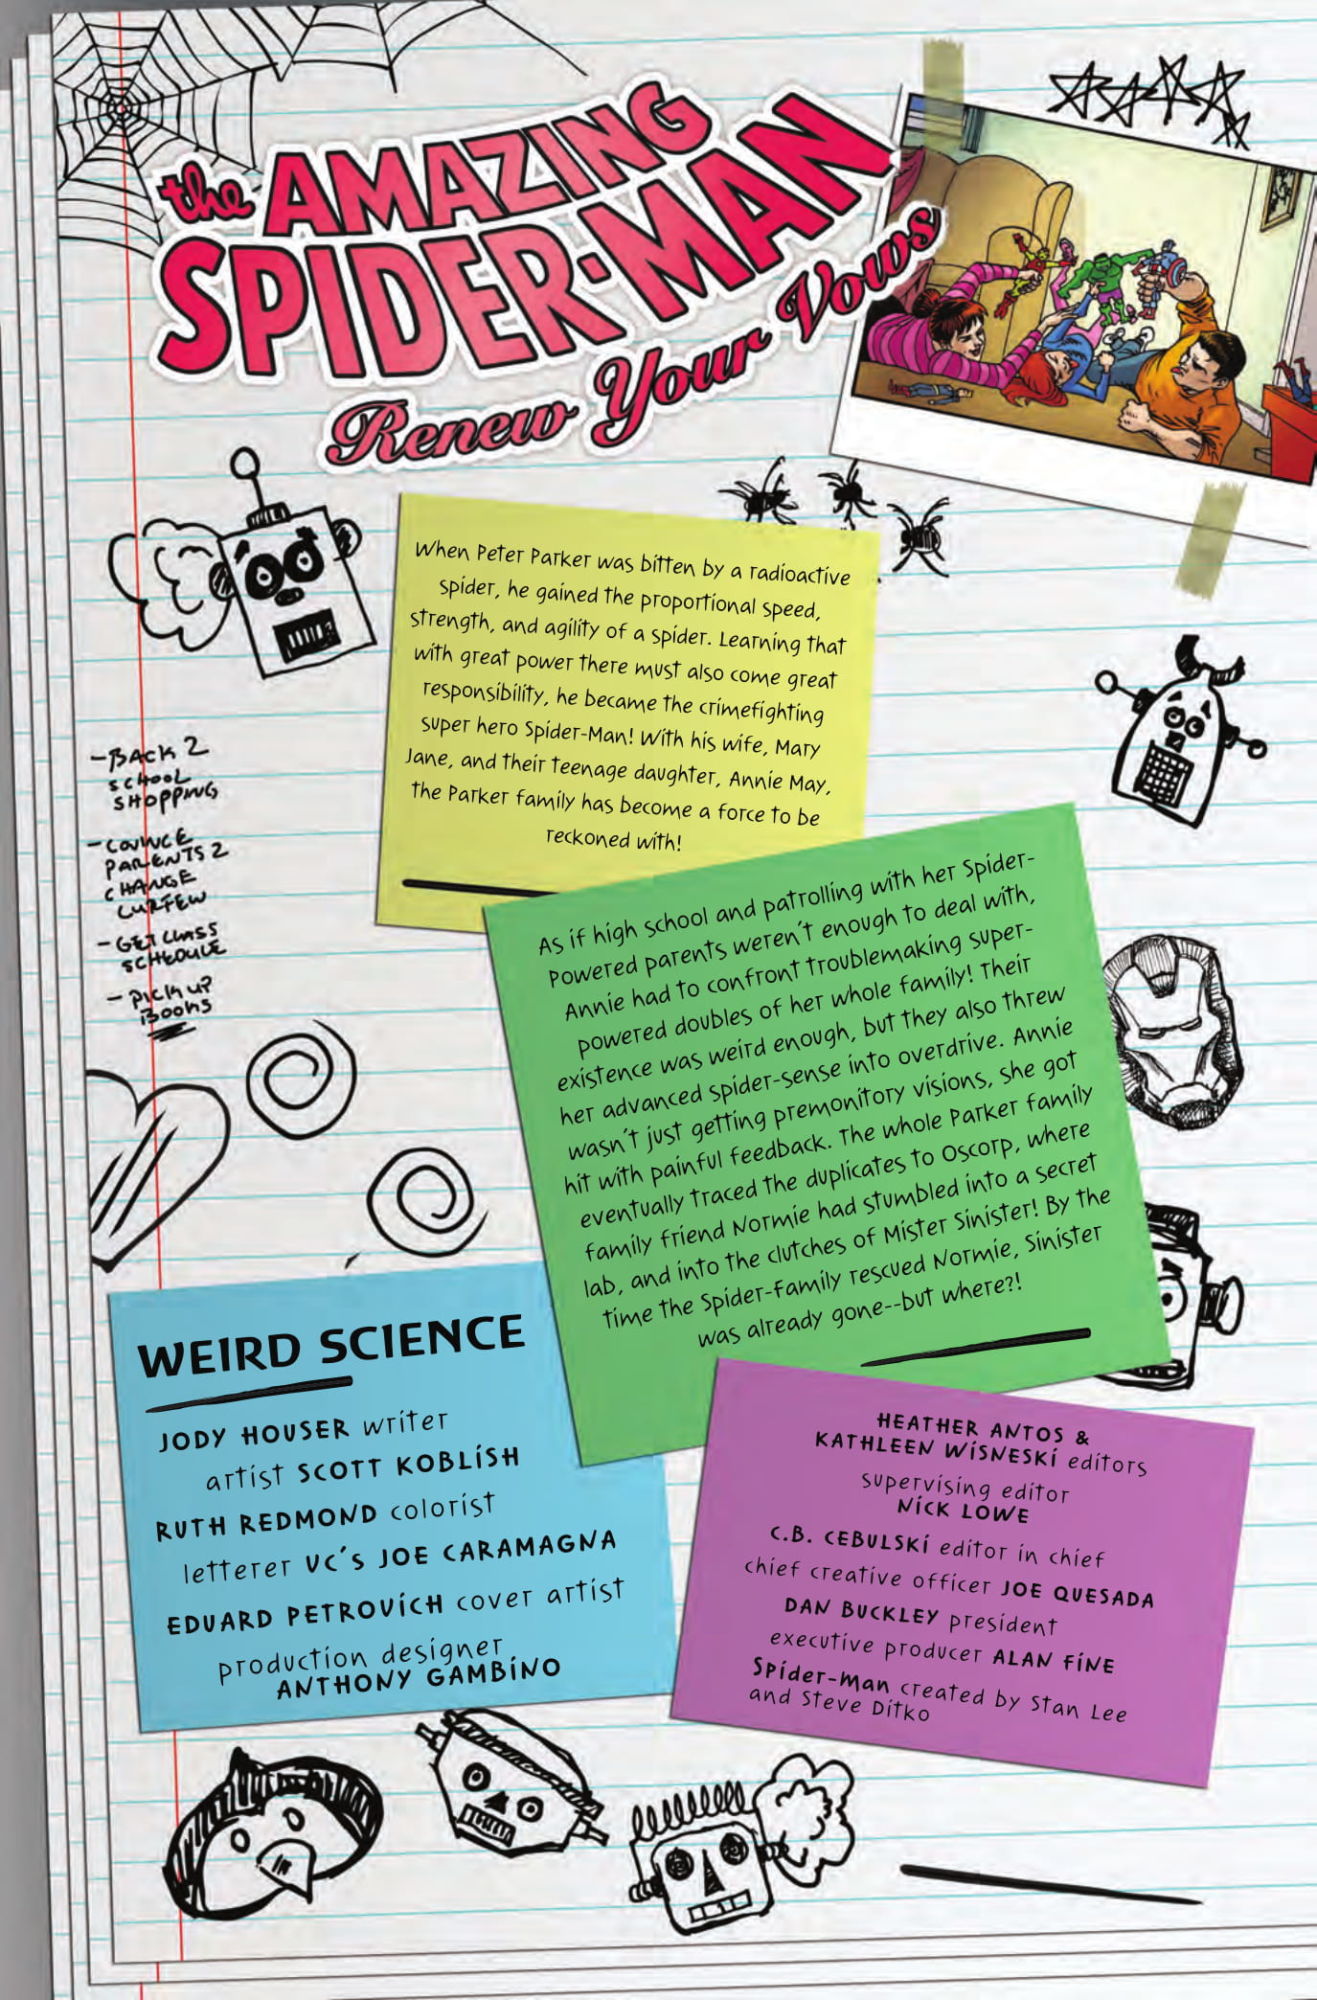 the AMAZING
SPIDER-MAN
Renew Your Vows
When Peter Parker was bitten by a radioactive
spider, he gained the proportional speed,
strength, and agility of a spider. Learning that
with great power there must also come great
responsibility, he became the crimefighting
super hero Spider-Man! With his wife, Mary
Jane, and their teenage daughter, Annie May,
the Parker family has become a force to be
reckoned with!
-BACK 2
SCHOOL
SHOPPING
-CONVNCE
PARENTS 2
CHANGE
CURFEW
-GET CLASS
SCHEDULE
-PICK UP
BOOKS
As if high school and patrolling with her Spider-
Powered parents weren't enough to deal with,
Annie had to confront troublemaking super-
powered doubles of her whole family! Their
existence was weird enough, but they also threw
her advanced spider-sense into overdrive. Annie
wasn't just getting premonitory visions, she got
hit with painful feedback. The whole Parker family
eventually traced the duplicates to Oscorp, where
family friend Normie had stumbled into a secret
lab, and into the clutches of Mister Sinister! By the
time the Spider-family rescued Normie, Sinister
was already gone--but where?!
WEIRD SCIENCE
JODY HOUSER writer
artist SCOTT KOBLISH
RUTH REDMOND colorist
letterer VC'S JOE CARAMAGNA
EDUARD PETROVICH cover artist
production designer
ANTHONY GAMBINO
HEATHER ANTOS &
KATHLEEN WISNESKI editors
supervising editor
NICK LOWE
C.B. CEBULSKI editor in chief
chief creative officer JOE QUESADA
DAN BUCKLEY president
executive producer ALAN FINE
Spider-Man created by Stan Lee
and Steve Ditko